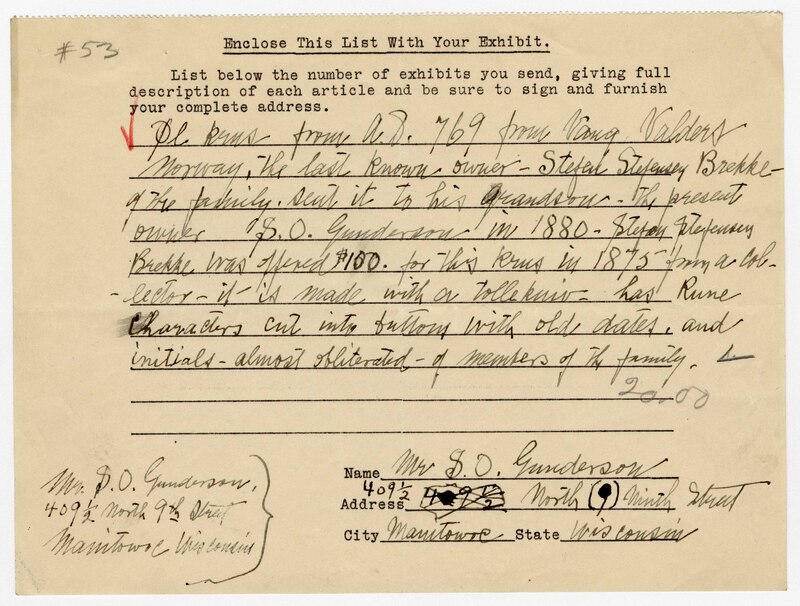 #53
Enclose This List With Your Exhibit.
List below the number of exhibits you send, giving full
description of each article and be sure to sign and furnish
your complete address.
Øl krus from A.D. 769 from Vang, Valders
Norway, the last known owner - Stefen Stefensen Brekke -
of the family. sent it to his grandson - the present
owner S. O. Gunderson in 1880 - Stefen Stefensen
Brekke was offered $100. for this krus in 1875 from a col-
-lector - it is made with a tollekniv - has Rune
characters cut into buttom with old dates, and
initials - almost obliterated - of members of the family.
20.00
Name Mr S. O. Gunderson
409½
Address North (9) Ninth Street
City Manitowoc State Wisconsin
Mr. S. O. Gunderson,
409½ North 9th Street
Manitowoc Wisconsin